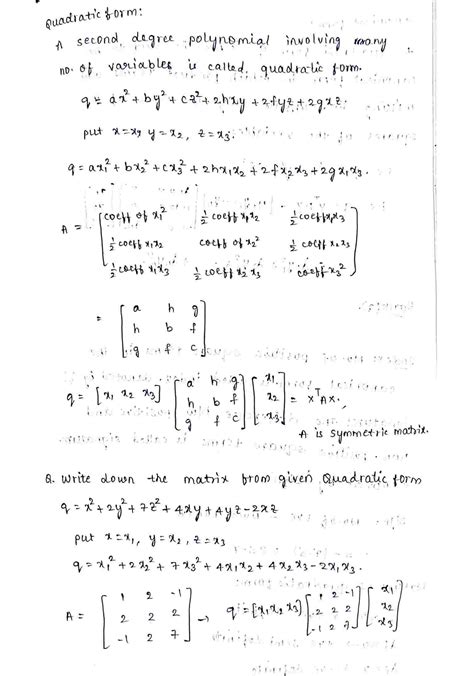 Quadratic form:
A second degree polynomial involving many
no. of variables is called quadratic form.
q = ax² + by² + cz² + 2hxy + 2fyz + 2gxz.
put x = x₁ y = x₂, z = x₃.
q = ax₁² + bx₂² + cx₃² + 2hx₁x₂ + 2fx₂x₃ + 2gx₁x₃.
A = [coeff of x₁² ½ coeff x₁x₂ ½ coeff x₁x₃
½ coeff x₁x₂ coeff of x₂² ½ coeff x₂x₃
½ coeff x₁x₃ ½ coeff x₂x₃ coeff x₃²]
= [a h g
h b f
g f c]
q = [x₁ x₂ x₃] [a h g; h b f; g f c] [x₁; x₂; x₃] = xᵀAx.
A is symmetric matrix.
Q. Write down the matrix from given Quadratic form
q = x² + 2y² + 7z² + 4xy + 4yz - 2xz
put x = x₁, y = x₂, z = x₃
q = x₁² + 2x₂² + 7x₃² + 4x₁x₂ + 4x₂x₃ - 2x₁x₃.
A = [1 2 -1; 2 2 2; -1 2 7] → q = [x₁ x₂ x₃] [1 2 -1; 2 2 2; -1 2 7] [x₁; x₂; x₃]